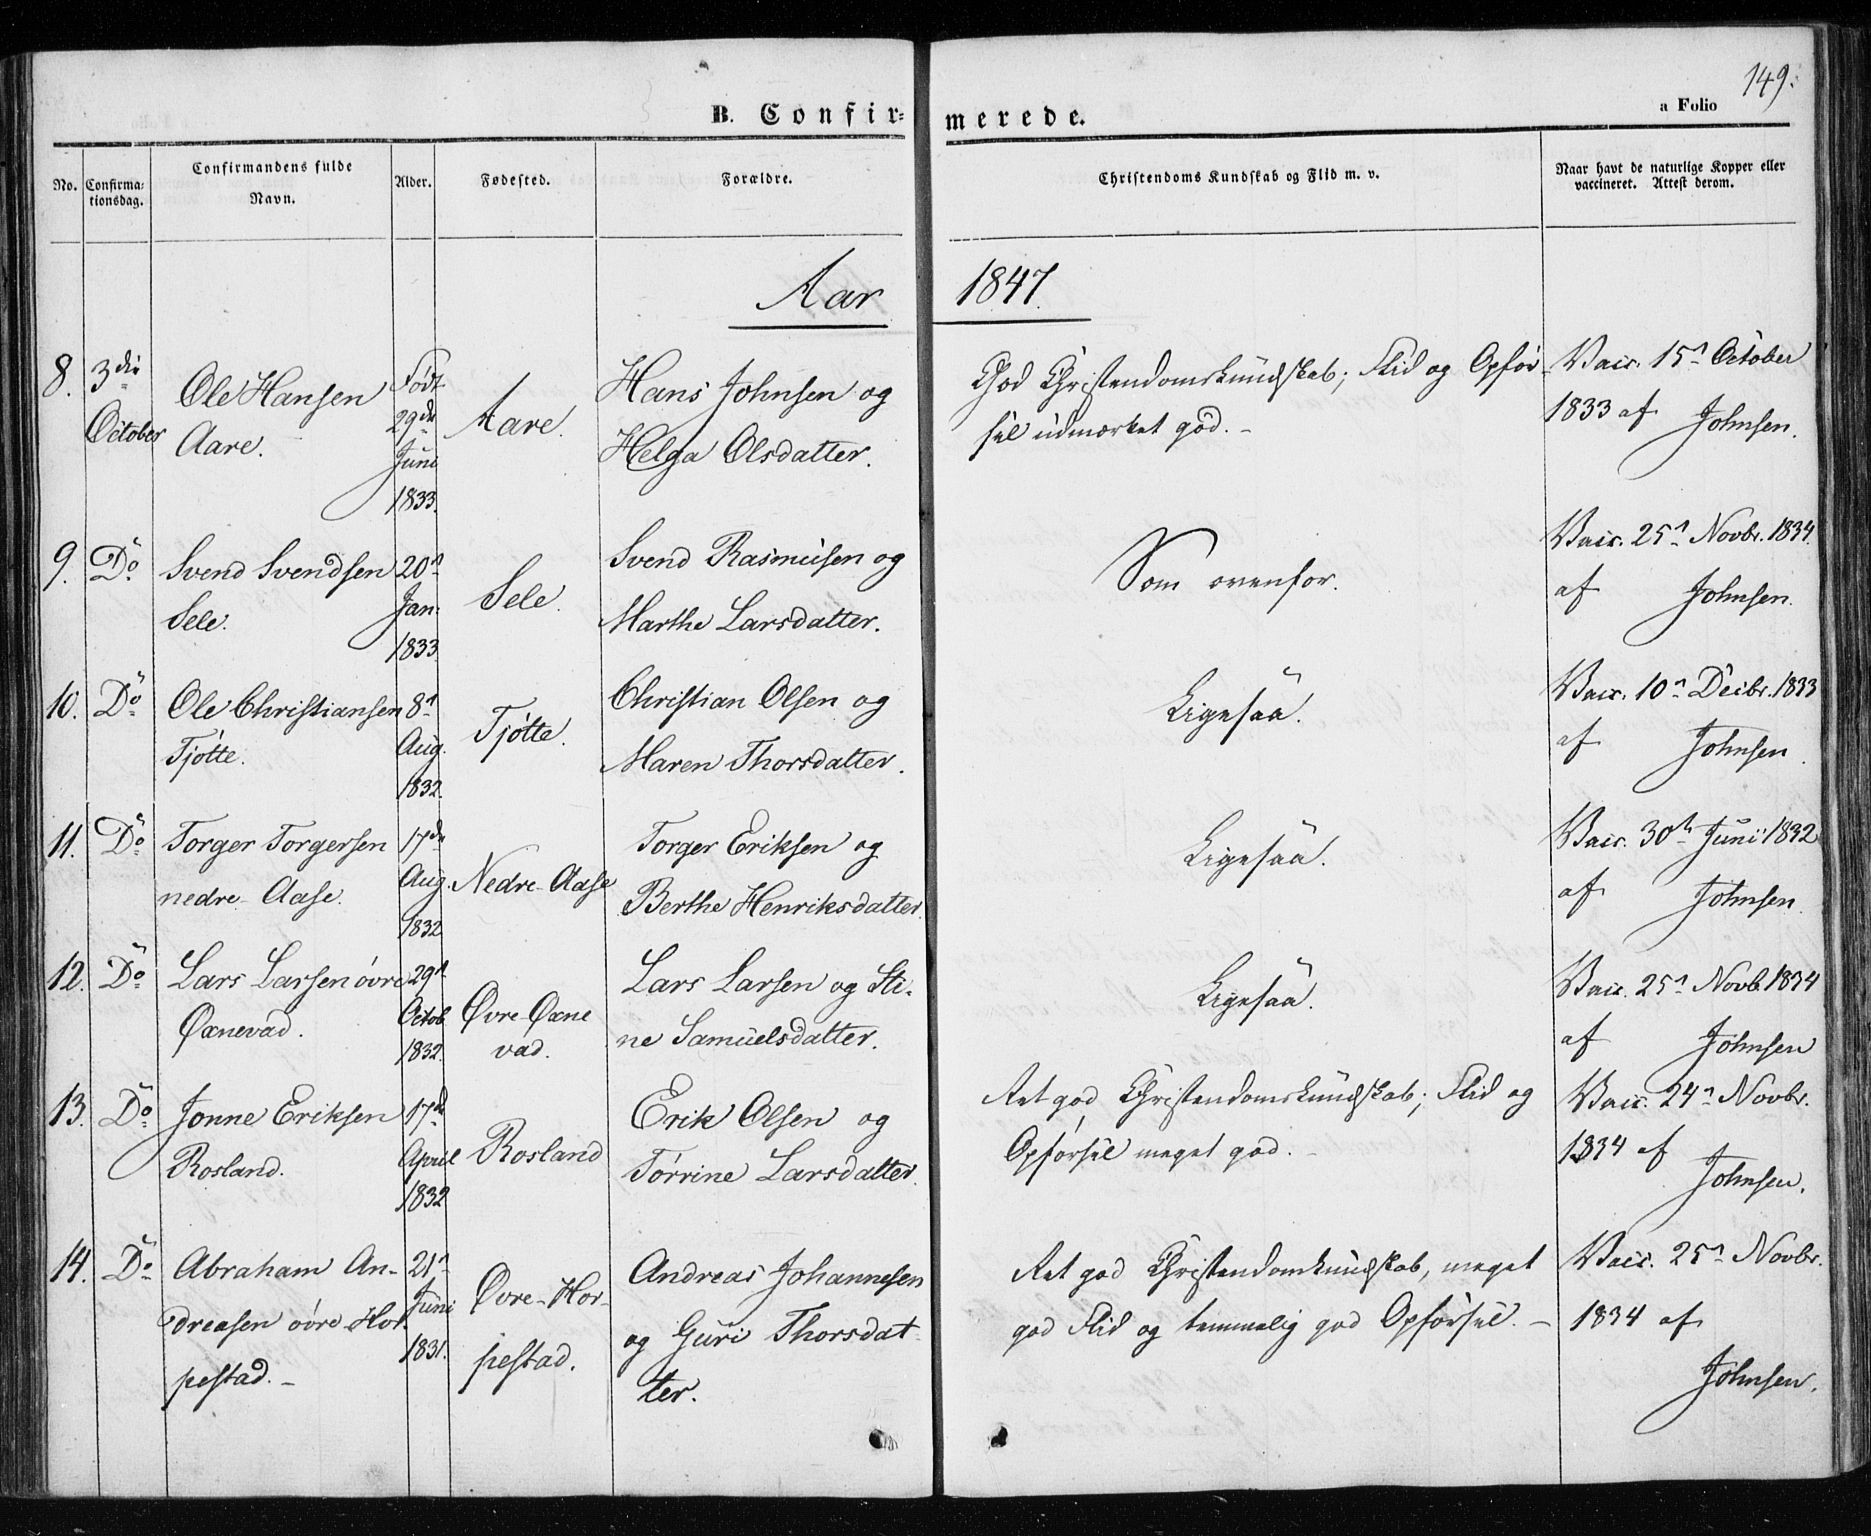 149.
a Folio
B. Confir-merede.
No.
Confirma-
tionsdag.
Confirmandens fulde
Navn.
Alder.
Fødested.
Forældre.
Christendoms Kundskab og Flid m. v.
Naar havt de naturlige Kopper eller
vaccineret. Attest derom.
Aar 1847.
8.
3die
October
Ole Hansen
Aare.
Født
29de
Juni
1833.
Aare.
Hans Johnsen og
Helga Olsdatter.
God Christendomskundskab; Flid og Opfør-
sel udmærket god. -
Vacc. 15n October
1833 af
Johnsen.
9.
Do
Svend Svendsen
Sele.
20n
Jan.
1833
Sele.
Svend Rasmusen og
Marthe Larsdatter.
Som ovenfor.
Vacc. 25n Novbr. 1834.
af Johnsen.
10.
Do
Ole Christiansen
Tjøtte.
8n
Aug.
1832.
Tjøtte.
Christian Olsen og
Maren Thorsdatter.
Ligesaa.
Vacc. 10n Decbr. 1833
af Johnsen.
11.
Do
Torger Torgersen
nedre Aase.
17de
Aug.
1832
Nedre-Aase
Torger Eriksen og
Berthe Henriksdatter.
Ligesaa.
Vacc. 30te Juni 1832
af Johnsen.
12.
Do
Lars Larsen øvre
Oxnevad.
29n
Octob
1832.
Øvre-Oxne
vad.
Lars Larsen og Sti-
ne Samuelsdatter.
Ligesaa.
Vacc. 25n Novb. 1834
af Johnsen
13.
Do
Jonne Eriksen
Rosland.
17de
April
1832
Rosland
Erik Olsen og
Tørrine Larsdatter.
Ret god Christendomskundskab; Flid og
Opførsel meget god. -
Vacc. 24n Novbr.
1834 af
Johnsen.
14.
Do
Abraham An-
dreasen øvre Hor-
pestad. -
21n
Juni
1831.
Øvre-Hor-
pestad.
Andreas Johannesen
og Guri Thorsdat-
ter.
Ret god Christendomkundskab, meget
god Flid og temmelig god Opførsel. -
Vacc. 25n Novbr.
1834 af
Johnsen.